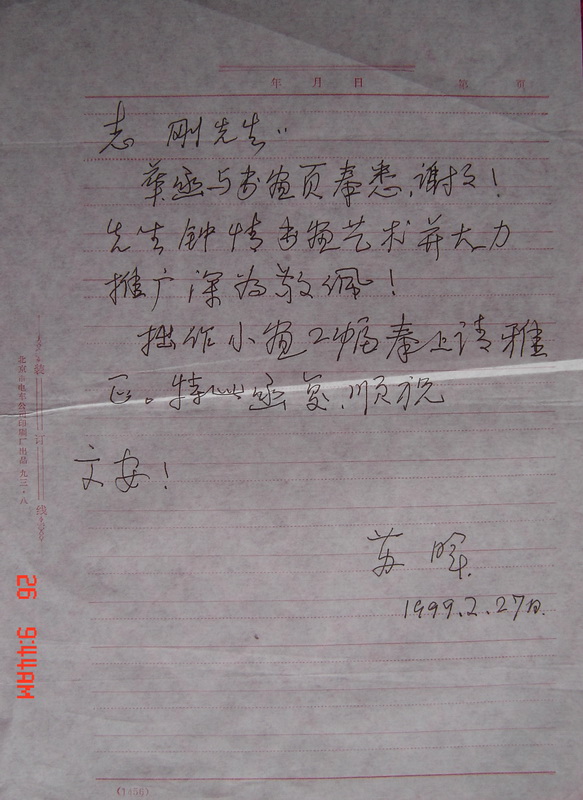 年 月 日 第 页
志 刚先生：
华函与书画页奉悉，谢谢！
先生钟情书画艺术并大力
推广深为敬佩！
拙作小画二幅奉上请雅
正。特此函复，顺祝
文安！
苏 晖
1999.2.27日.
装 订 线
北京市电车公司印刷厂出品 九三·八
26 9:44AM
(1456)